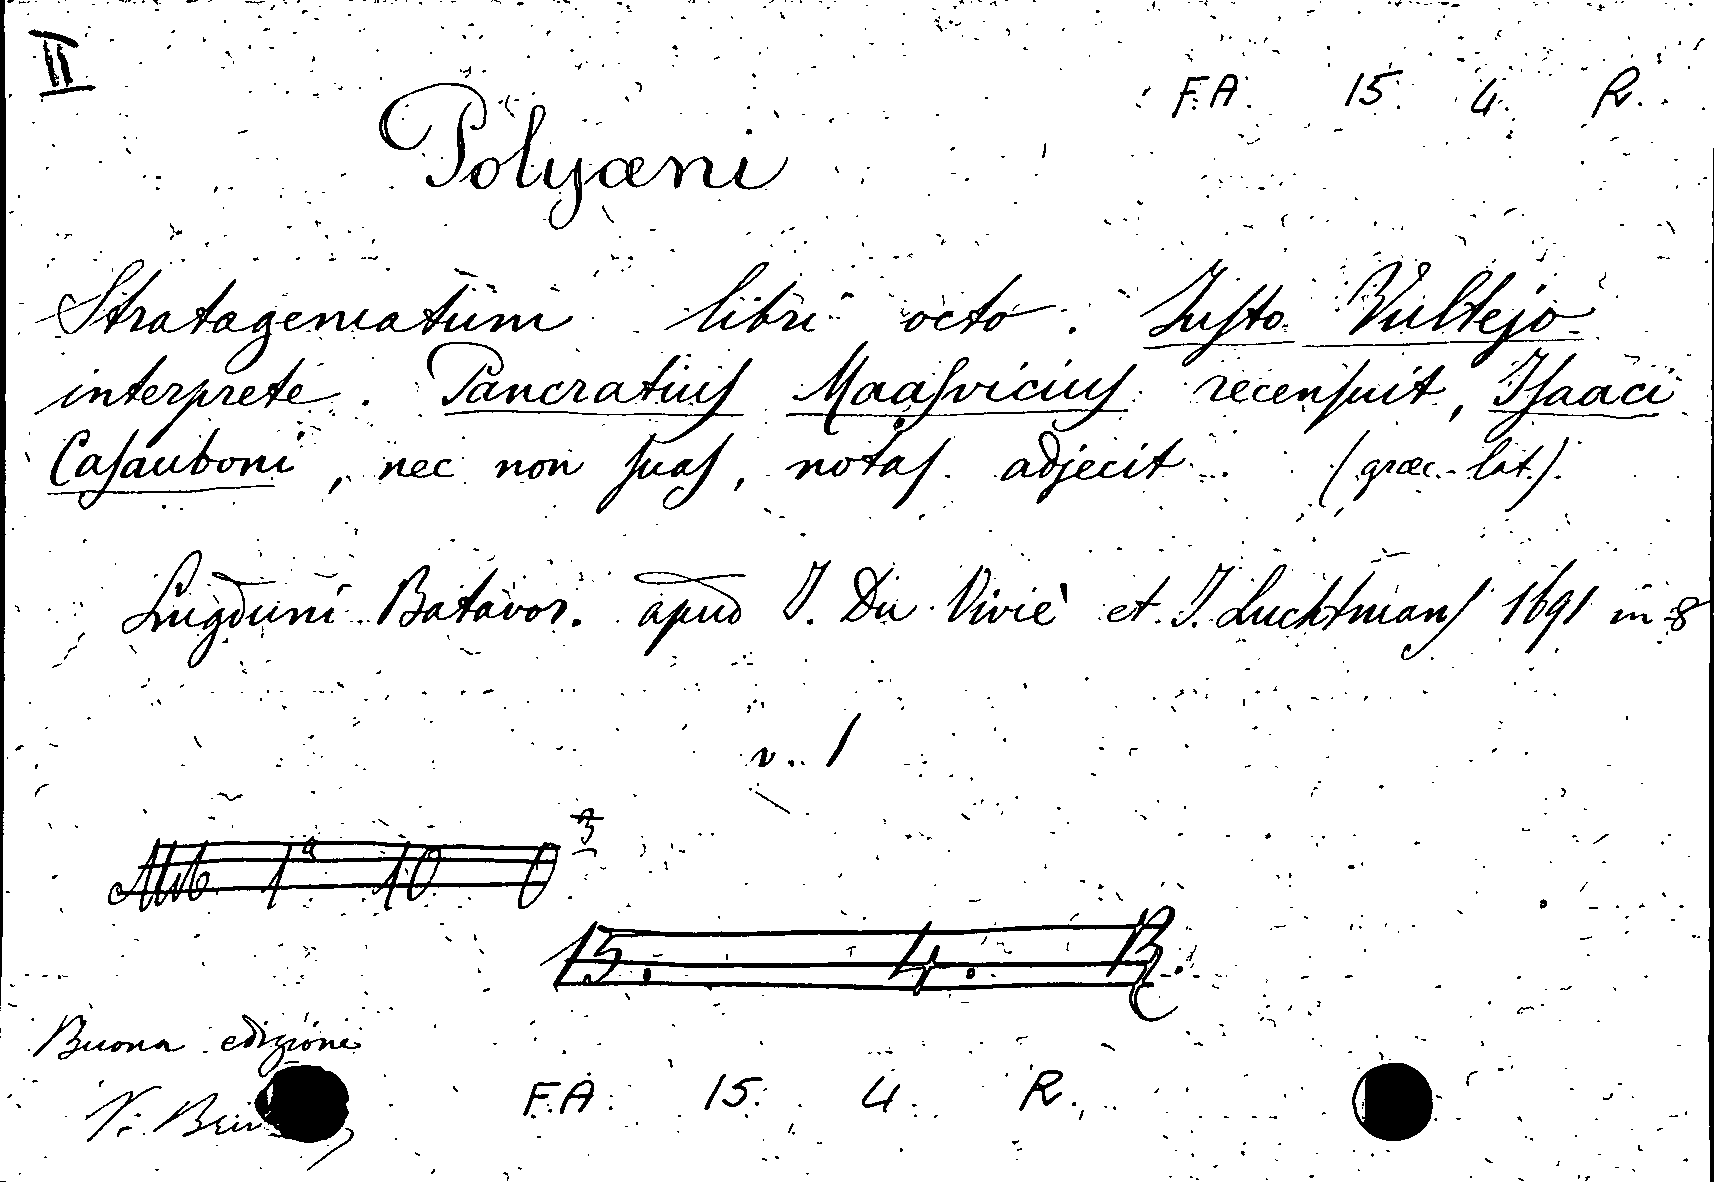 II
F.A. 15. 4. R.
Polyæni
Stratagematum libri octo. Justo Vultejo
interprete. Pancratius Maasvicius recensuit, Isaaci
Casauboni, nec non suas, notas adjecit. (græc.-lat.).
Lugduni Batavor. apud J. Du Vivié et J. Luchtmans 1691 in 8
v. 1
1ª 10 0 3
15. 4. R.
Buona edizione
V.
F.A. 15. 4. R.